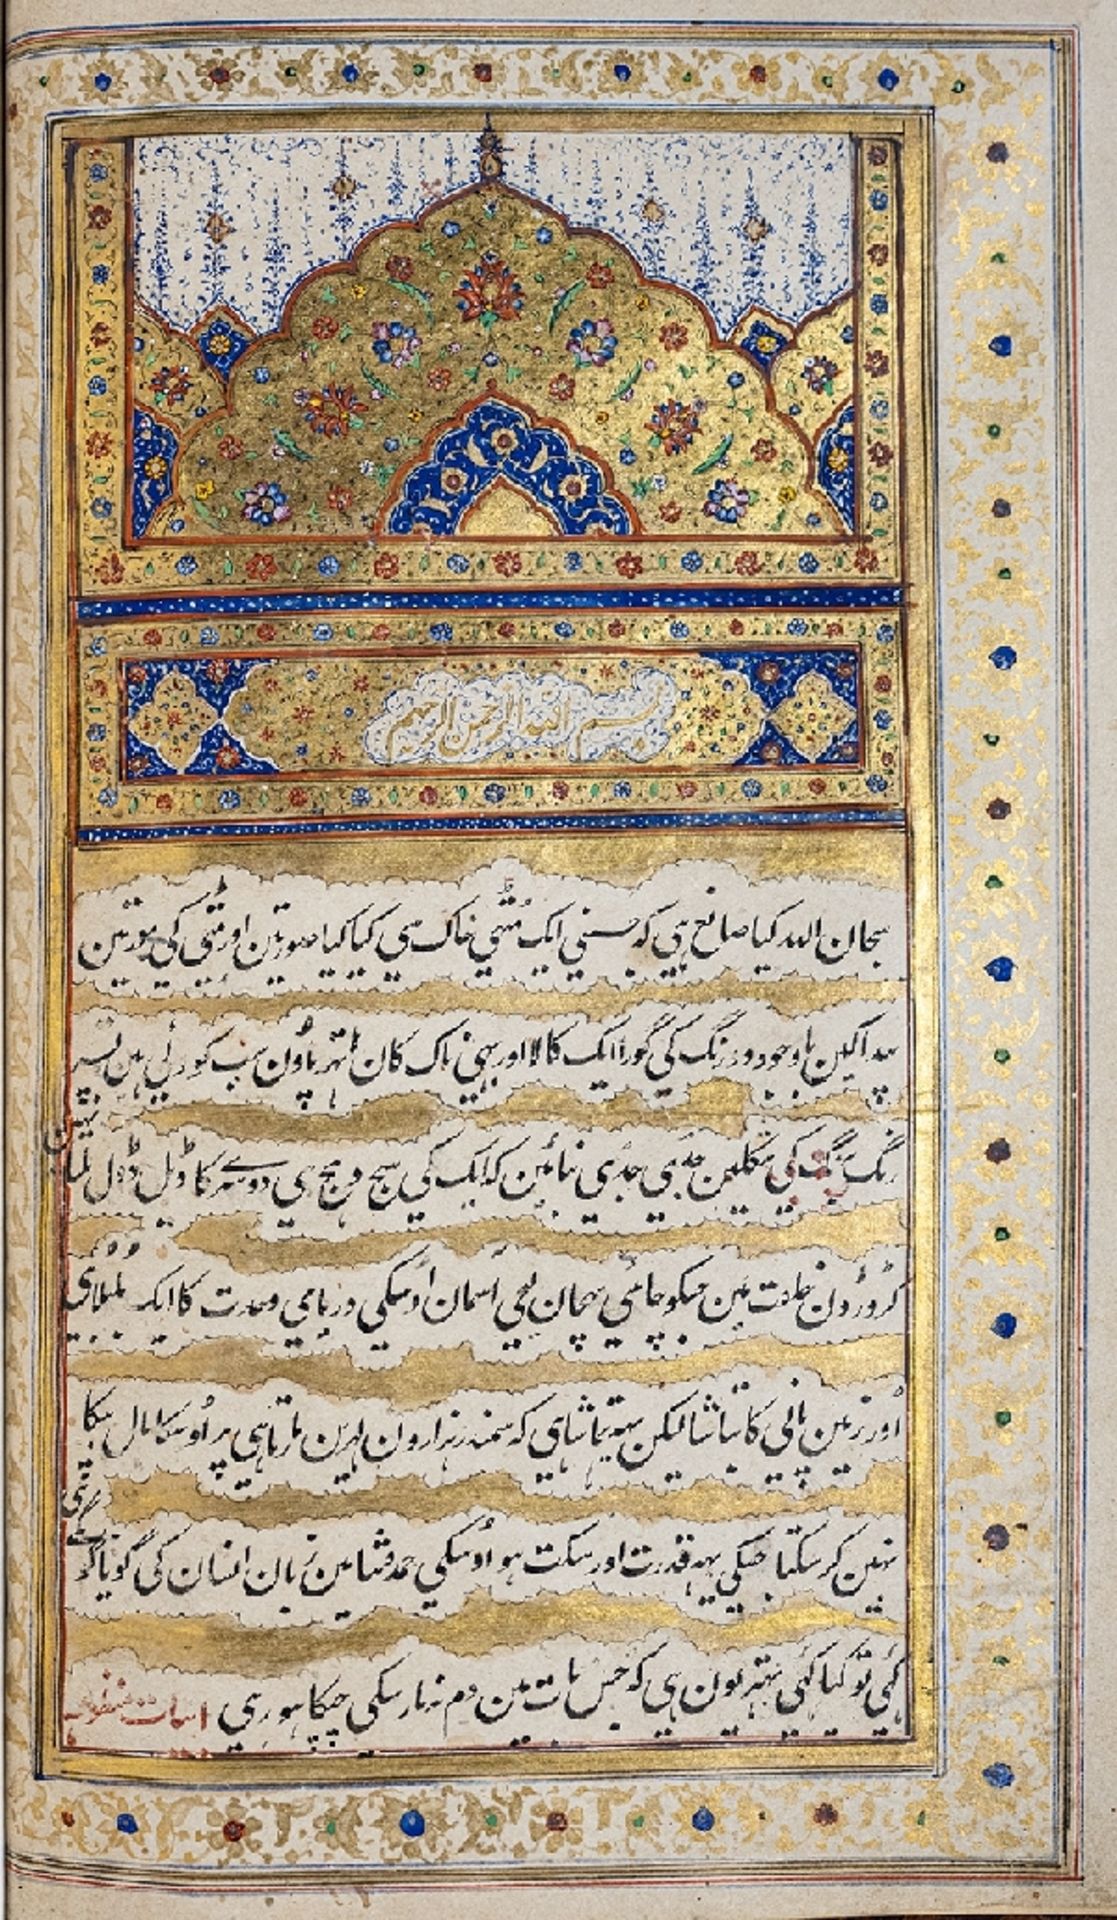 بسم الله الرحمن الرحیم
سبحان اللہ کیا صانع ہی کہ جسنی ایک مٹھی خاک سی کیا کیا صورتین اور مٹی کی مورتین
پیدا کین باوجود دو رنگ کی گورا ایک کالا اور یہی ناک کان ہاتھ پاون سب کو دئی ہین تسپر
رنگ برنگ کی شکلین جدی جدی بنائین کہ ایک کی سج دھج سی دوسرے کا ڈیل ڈول ملتا نہین
کڑورون خلقت مین جسکو چاہئی پہچان لیجی آسمان اوسکی دریای وحدت کا ایک بلبلا ہی
اور زمین پانی کا بتاشا لیکن یہہ تماشا ہی کہ سمندر ہزارون لہرین مارتا ہی پر اوسکا بال بیکا
نہین کر سکتا جسکی یہہ قدرت اور سکت ہو اوسکی حمد و ثنا مین زبان انسان کی گویا گونگی
کہی تو کیا کہی بہتر یون ہی کہ جس بات مین دم نہ مار سکی چپکا ہو رہی ابیات